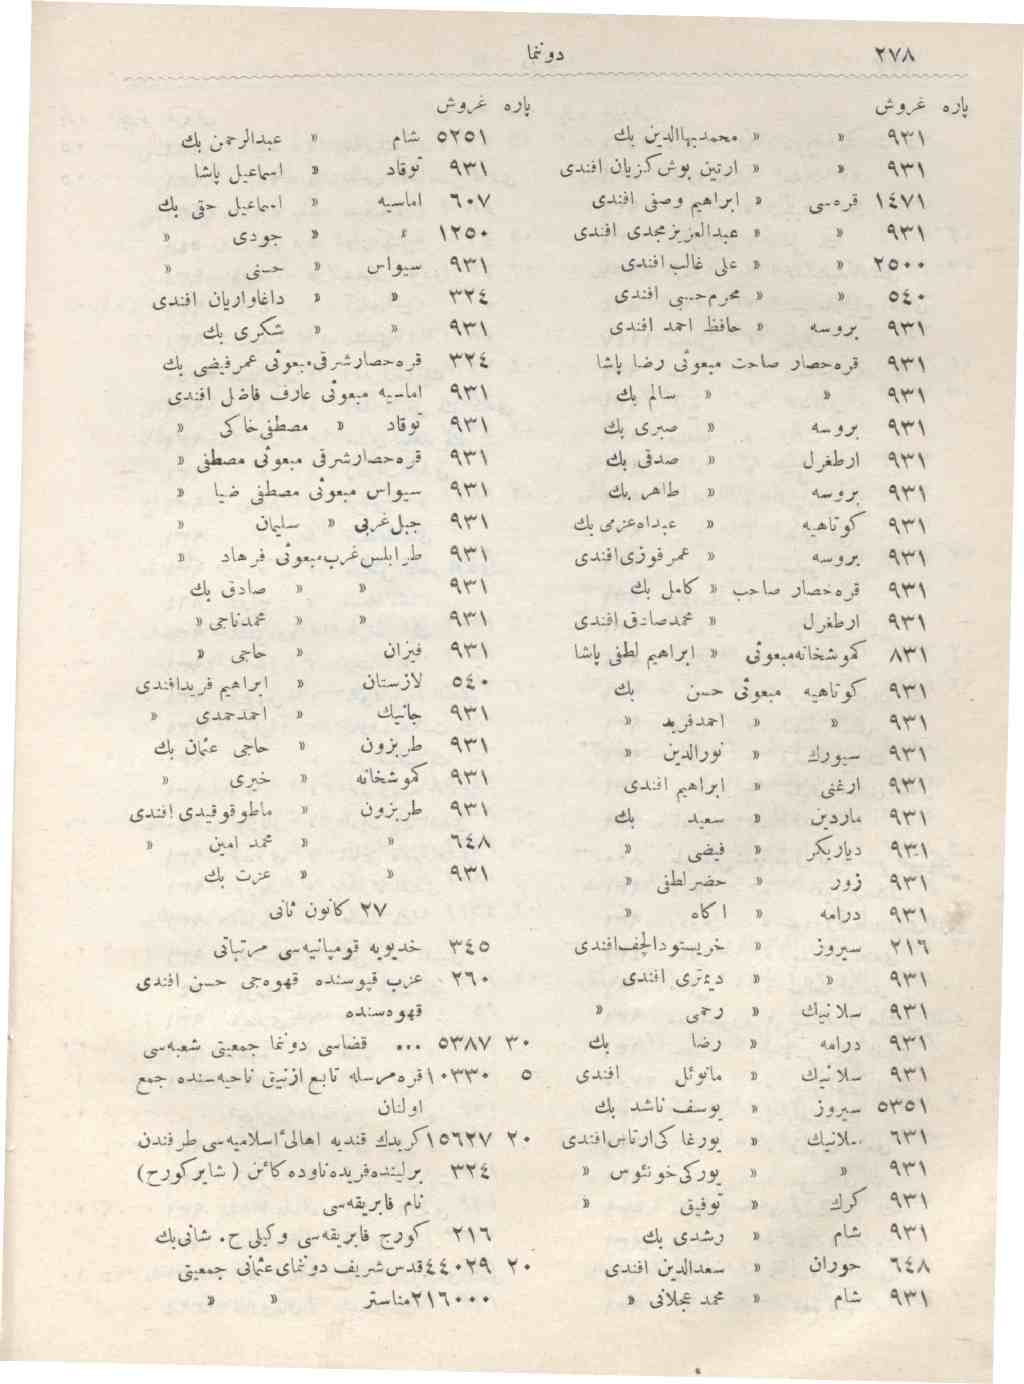 ٢٧٨ دوننما
پاره غروش
٩٣١ » » محمدبهاالدین بك
٩٣١ » » ارتین بوش‌كزیان افندی
١٤٧١ قره‌سی » ابراهیم وصفی افندی
٩٣١ » » عبدالعزیزمجدی افندی
٢٥٠٠ » » علی غالب افندی
٥٤٠ » » محرم‌حسبی افندی
٩٣١ بروسه » حافظ احمد افندی
٩٣١ قره‌حصار صاحت مبعوثی رضا پاشا
٩٣١ » » سالم بك
٩٣١ بروسه » صبری بك
٩٣١ ارطغرل » صدقی بك
٩٣١ بروسه » طاهر بك
٩٣١ كوتاهیه » عبداه‌عزمی‌بك
٩٣١ بروسه » عمرفوزی‌افندی
٩٣١ قره‌حصار صاحب » كامل بك
٩٣١ ارطغرل » محمدصادق افندی
٨٣١ كموشخانه‌مبعوثی » ابراهیم لطفی پاشا
٩٣١ كوتاهیه مبعوثی حسن بك
٩٣١ » » احمدفرید »
٩٣١ سیورك » نورالدین »
٩٣١ ارغنی » ابراهیم افندی
٩٣١ ماردین » سعید بك
٩٣١ دیاربكر » فیضی »
٩٣١ زور » خضرلطفی »
٩٣١ درامه » اكاه »
٢١٦ سیروز » خریستودالچف‌افندی
٩٣١ » » دیمتری افندی
٩٣١ سلانیك » رحمی »
٩٣١ درامه » رضا بك
٩٣١ سلانیك » مانوئل افندی
٥٣٥١ سیروز » یوسف ناشد بك
٦٣١ سلانیك » یورغاكی‌ارتاس‌افندی
٩٣١ » » یوركی‌خونئوس »
٩٣١ كرك » توفیق »
٩٣١ شام » رشدی بك
٦٤٨ حوران » سعدالدین افندی
٩٣١ شام » محمد عجلانی »
پاره غروش
٥٢٥١ شام » عبدالرحمن بك
٩٣١ توقاد » اسماعیل پاشا
٦٠٧ اماسیه » اسماعیل حقی بك
١٢٥٠ » » جودی »
٩٣١ سیواس » حسنی »
٣٢٤ » » داغاواریان افندی
٩٣١ » » شكری بك
٣٢٤ قره‌حصارشرقی‌مبعوثی عمرفیضی بك
٩٣١ اماسیه مبعوثی عارف فاضل افندی
٩٣١ توقاد » مصطفی‌خاكی »
٩٣١ قره‌حصارشرقی مبعوثی مصطفی »
٩٣١ سیواس مبعوثی مصطفی ضیا »
٩٣١ جبل‌غربی » سلیمان »
٩٣١ طرابلس‌غرب‌مبعوثی فرهاد »
٩٣١ » » صادق بك
٩٣١ » » محمدناجی»
٩٣١ فیزان » حاجی »
٥٤٠ لازستان » ابراهیم فریدافندی
٩٣١ جانیك » احمدحمدی »
٩٣١ طربزون » حاجی عثمان بك
٩٣١ كموشخانه » خیری »
٩٣١ طربزون » ماطوقوقیدی افندی
٦٤٨ » » محمد امین »
٩٣١ » » عزت بك
٢٧ كانون ثانی
٣٤٥ خدیویه قومپانیه‌سی مرتباتی
٢٦٠ عزب قپوسنده قهوه‌جی حسن افندی
قهوه‌سنده
٣٠ ٥٣٨٧ ... قضاسی دوننما جمعیتی شعبه‌سی
٥ ١٠٣٣٠ قره‌مرسله تابع ازنیق ناحیه‌سنده جمع
اولنان
٢٠ ١٥٦٢٧ كریدك قندیه اهالیٔ اسلامیه‌سی طرفندن
٣٢٤ برلینده‌فریده‌ناوده‌كائن ( شایركورح)
نام فابریقه‌سی
٢١٦ كورج فابریقه‌سی وكیلی ح. شانی‌بك
٢٠ ٤٤٠٢٩ قدس‌شریف دوننمای‌عثمانی جمعیتی
٢١٦٠٠٠ مناستر » »